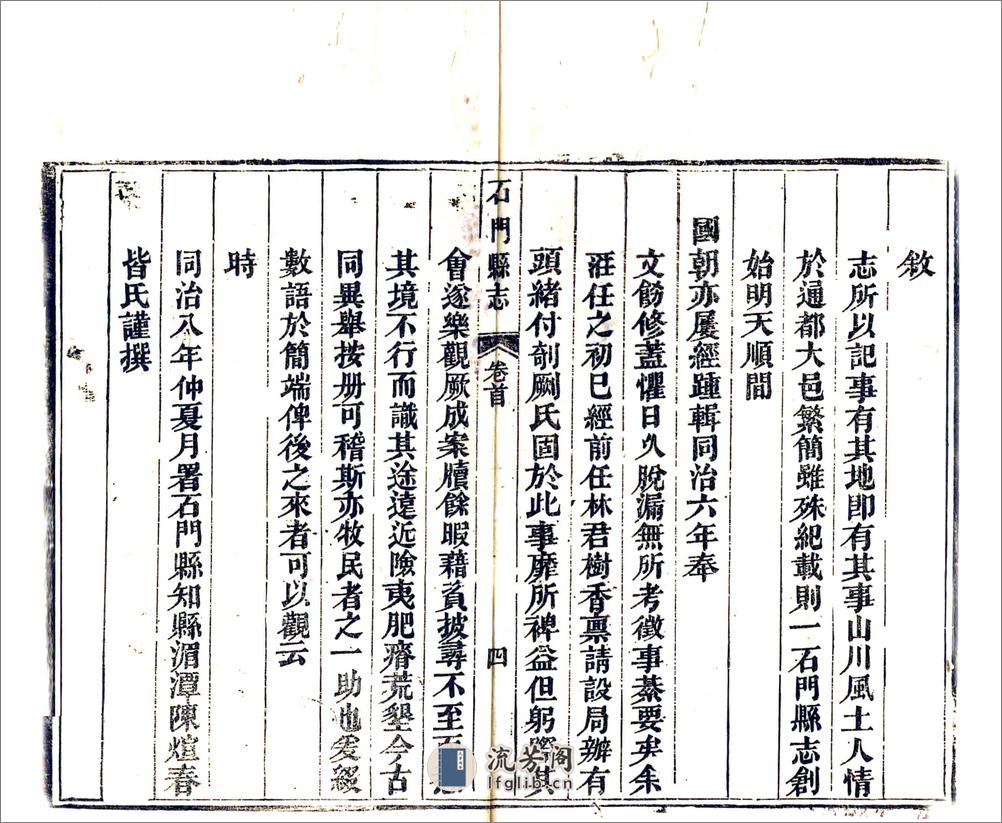 敘
志所以記事有其地即有其事山川風土人情
於通都大邑繁簡雖殊紀載則一石門縣志創
始明天順間
國朝亦屢經踵輯同治六年奉
文飭修蓋懼日久脫漏無所考徵事綦要矣余
涖任之初已經前任林君樹香稟請設局辦有
頭緒付剞劂氏固於此事靡所裨益但躬際其
石門縣志
卷首
四
會遂樂觀厥成案牘餘暇藉資披尋不至
其境不行而識其途遠近險夷肥瘠荒墾今古
同異舉按册可稽斯亦牧民者之一助也爰綴
數語於簡端俾後之來者可以觀云
時
同治八年仲夏月署石門縣知縣湄潭陳煊春
皆氏謹撰
流芳阁
lfglib.cn